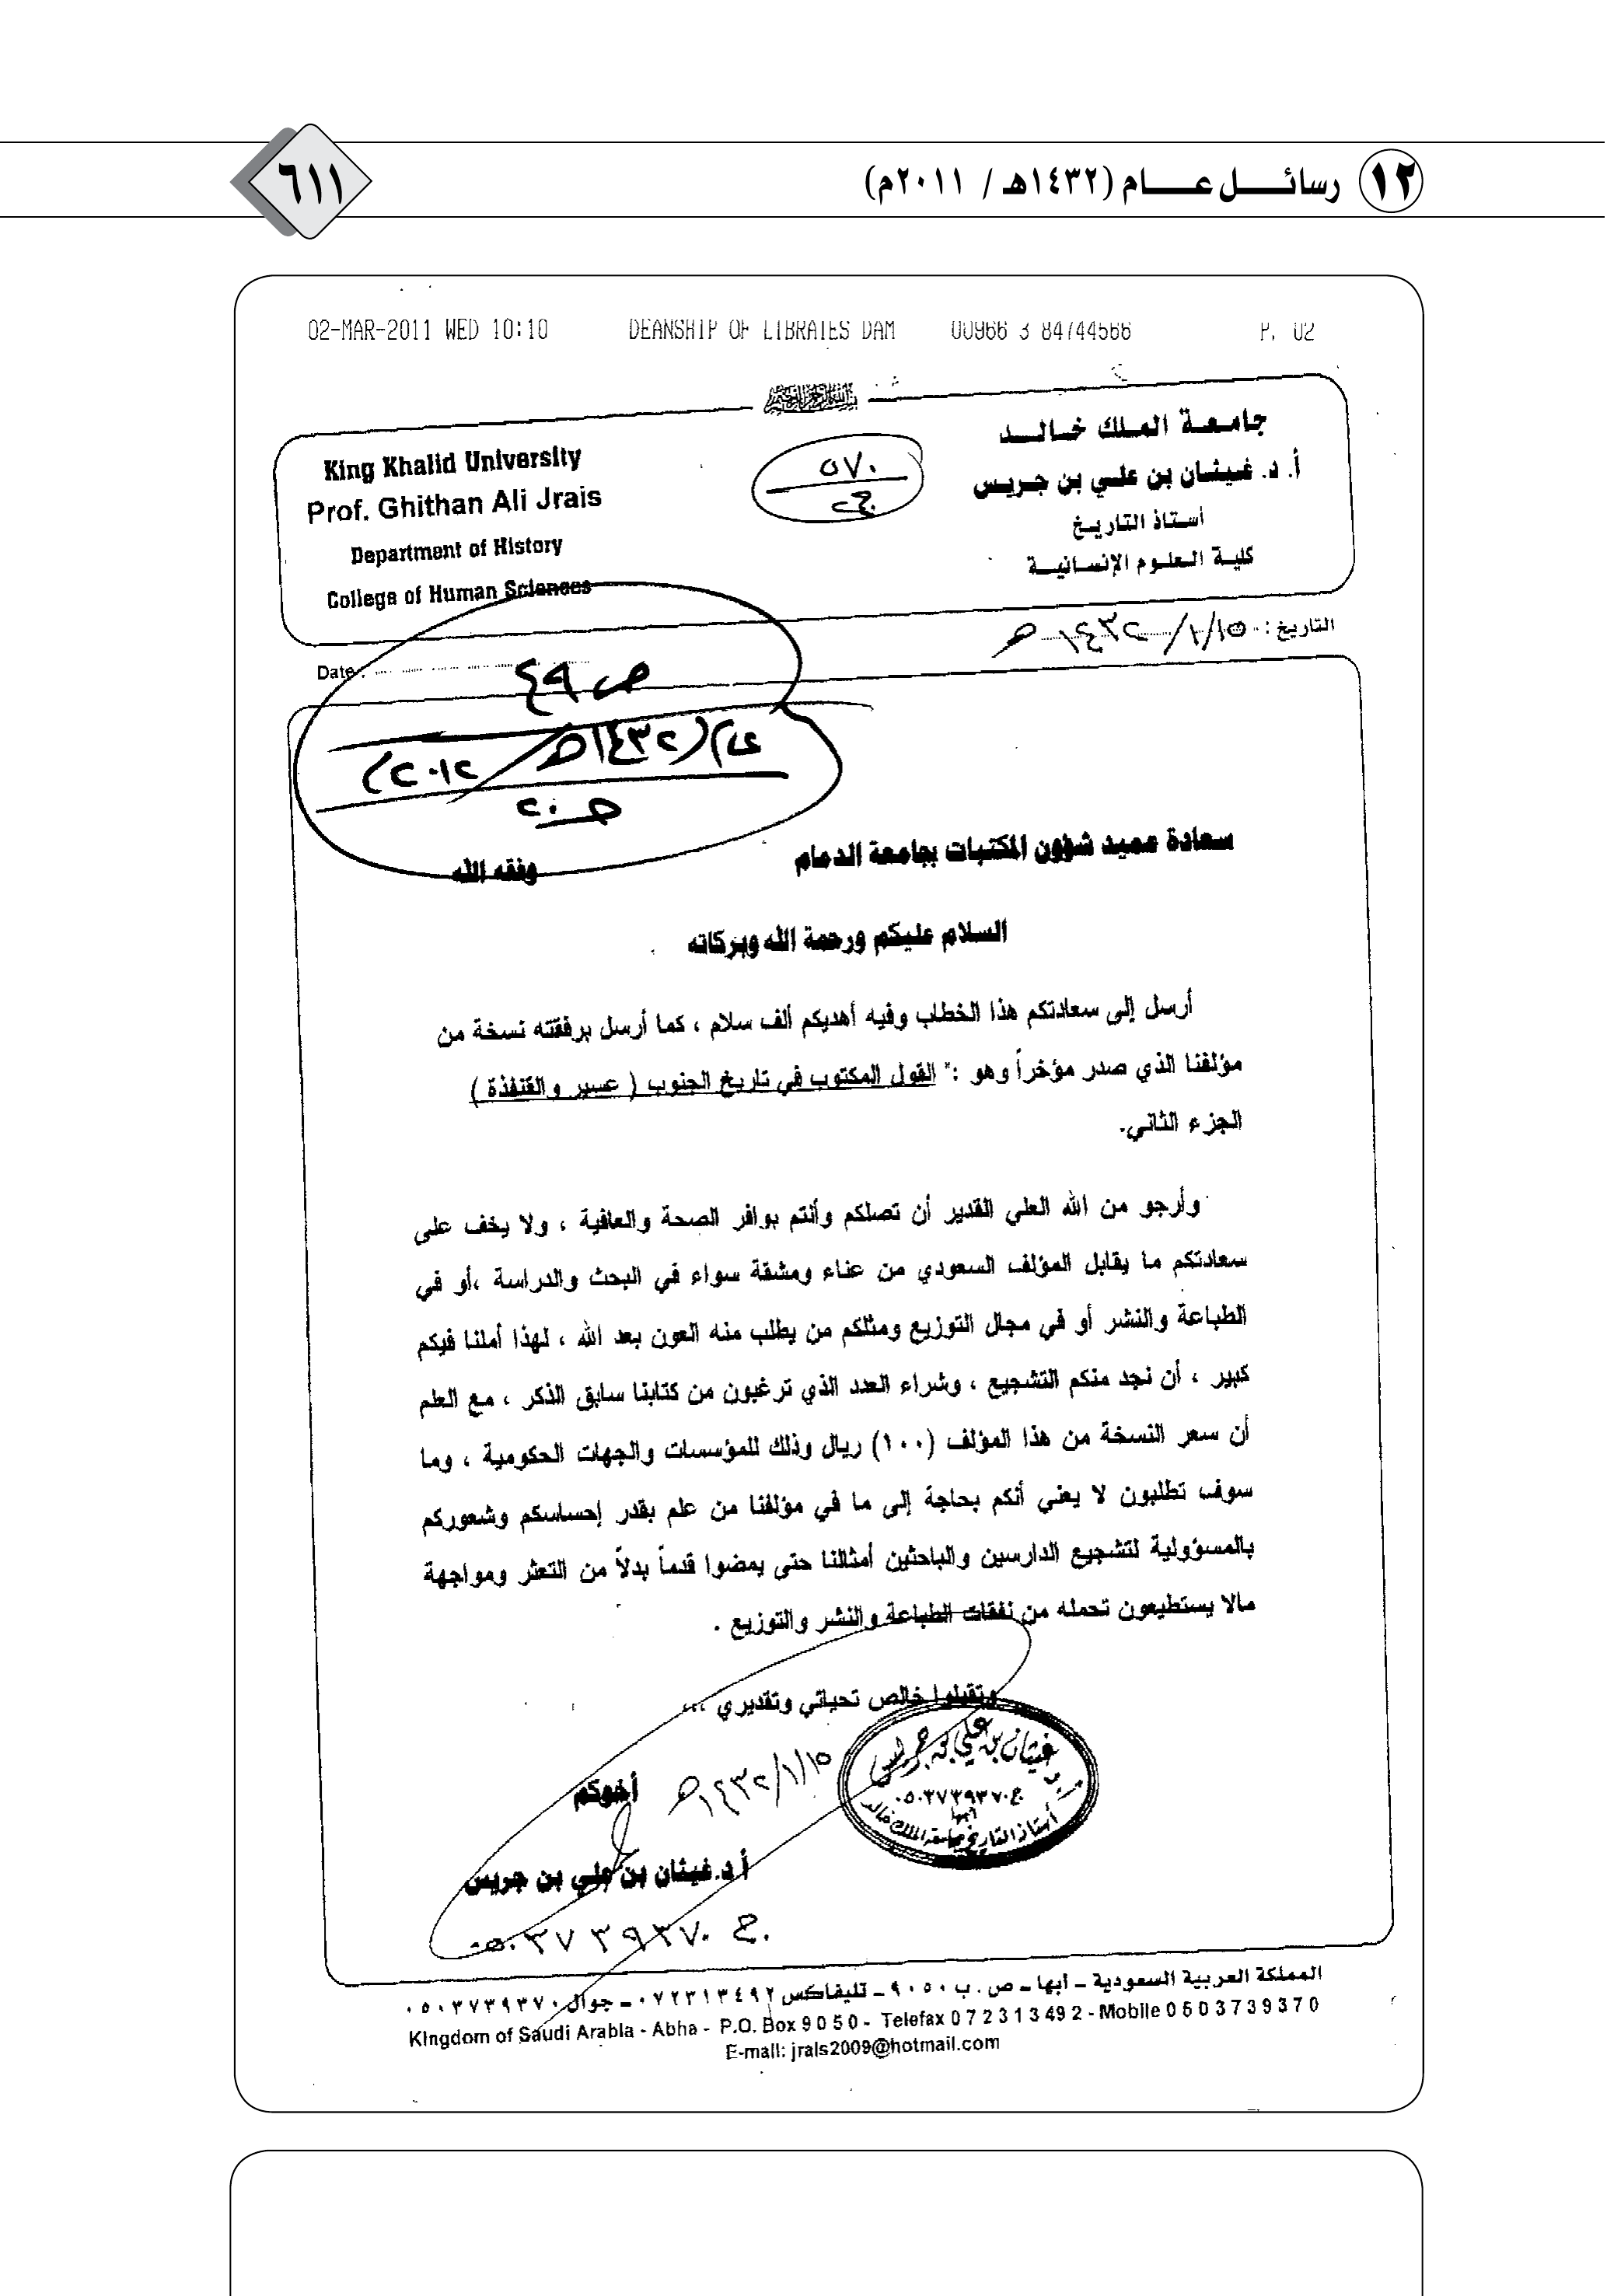 ١٢ رسائل عام (١٤٣٢هـ / ٢٠١١م)
٦١١
02-MAR-2011 WED 10:10 DEANSHIP OF LIBRAIES DAM 00966 3 84744566 P. 02
بسم الله الرحمن الرحيم
جامعة الملك خالد
أ. د. غيثان بن علي بن جريس
أستاذ التاريخ
كلية العلوم الإنسانية
King Khalid University
Prof. Ghithan Ali Jrais
Department of History
College of Human Sciences
٥٧٠
التاريخ : ١٤٣٢/١/١٥ هـ
Date :
ص ٤٩
عام (١٤٣٢هـ / ٢٠١٢)
سعادة عميد شؤون المكتبات بجامعة الدمام وفقه الله
السلام عليكم ورحمة الله وبركاته
أرسل إلى سعادتكم هذا الخطاب وفيه أهديكم ألف سلام ، كما أرسل برفقته نسخة من
مؤلفنا الذي صدر مؤخراً وهو :" القول المكتوب في تاريخ الجنوب ( عسير والقنفذة )
الجزء الثاني.
وأرجو من الله العلي القدير أن تصلكم وأنتم بوافر الصحة والعافية ، ولا يخف على
سعادتكم ما يقابل المؤلف السعودي من عناء ومشقة سواء في البحث والدراسة ،أو في
الطباعة والنشر أو في مجال التوزيع ومثلكم من يطلب منه العون بعد الله ، لهذا أملنا فيكم
كبير ، أن نجد منكم التشجيع ، وشراء العدد الذي ترغبون من كتابنا سابق الذكر ، مع العلم
أن سعر النسخة من هذا المؤلف (١٠٠) ريال وذلك للمؤسسات والجهات الحكومية ، وما
سوف تطلبون لا يعني أنكم بحاجة إلى ما في مؤلفنا من علم بقدر إحساسكم وشعوركم
بالمسؤولية لتشجيع الدارسين والباحثين أمثالنا حتى يمضوا قدماً بدلاً من التعثر ومواجهة
مالا يستطيعون تحمله من نفقات الطباعة والنشر والتوزيع .
وتقبلوا خالص تحياتي وتقديري ،،،
أ.د غيثان بن علي بن جريس
ج. ٠٥٠٣٧٣٩٣٧٠
أبها
أستاذ التاريخ بجامعة الملك خالد
١٤٣٢/١/١٥ هـ
أخوكم
أ د.غيثان بن علي بن جريس
ج. ٠٥٠٣٧٣٩٣٧٠
المملكة العربية السعودية - أبها - ص . ب ٩٠٥٠ - تليفاكس ٠٧٢٣١٣٤٩٢ - جوال ٠٥٠٣٧٣٩٣٧٠
Kingdom of Saudi Arabia - Abha - P.O. Box 9050 - Telefax 072313492 - Mobile 0503739370
E-mail: jrais2009@hotmail.com